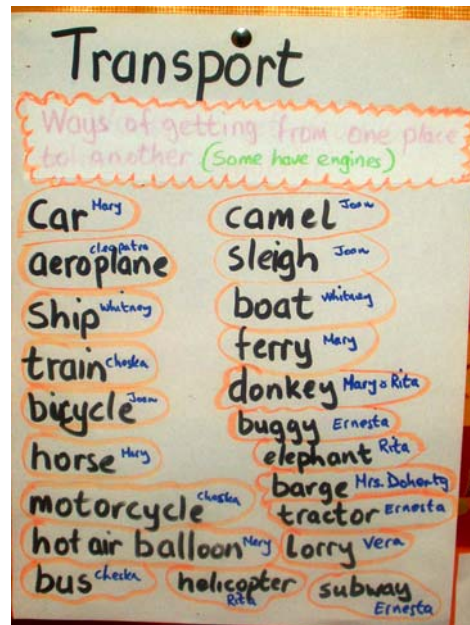 Transport
Ways of getting from one place
to another (Some have engines)
Car Mary
aeroplane cleopatra
Ship Whitney
train Cheska
bicycle Joan
horse Mary
motorcycle cheska
hot air balloon Mary
bus cheska
helicopter Rita
camel Joan
sleigh Joan
boat Whitney
ferry Mary
donkey Mary & Rita
buggy Ernesta
elephant Rita
barge Mrs. Doherty
tractor Ernesta
Lorry Vera
subway Ernesta